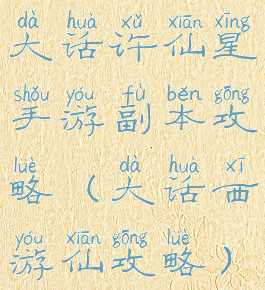 dà huà xǔ xiān xīng
大话许仙星
shǒu yóu fù běn gōng
手游副本攻
lüè dà huà xī
略（大话西
yóu xiān gōng lüè
游仙攻略）